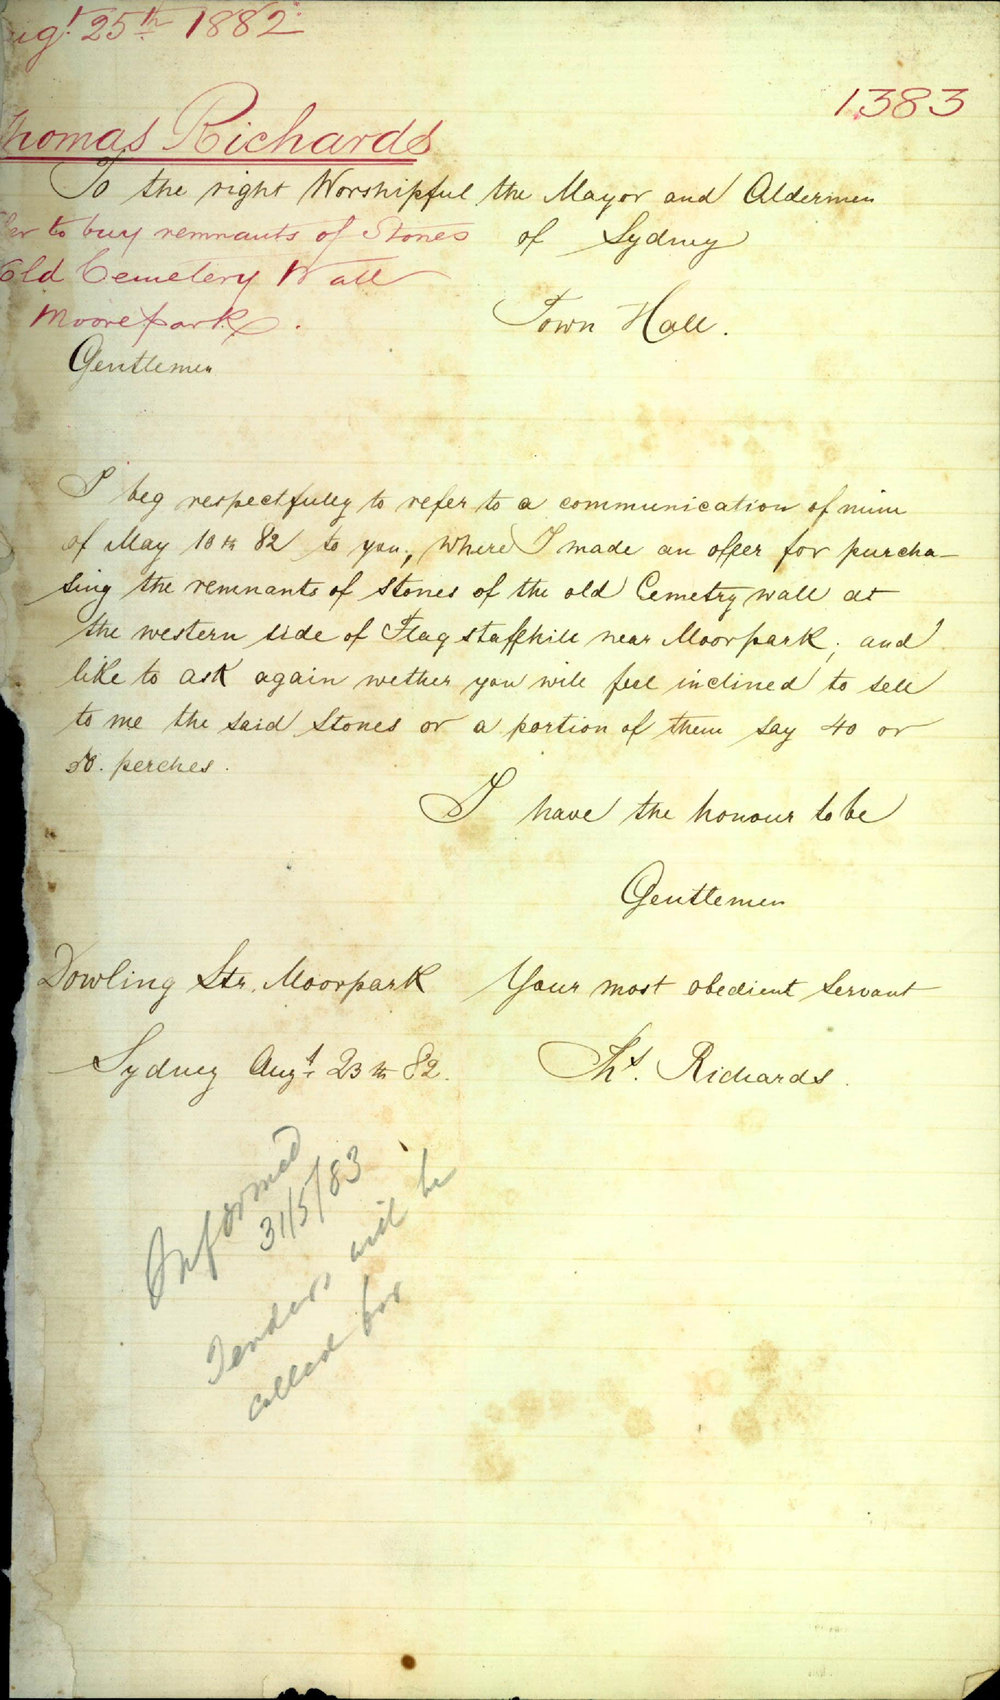 Augt 25th 1882
1383
Thomas Richards
To the right Worshipful the Mayor and Aldermen
of Sydney
offer to buy remnants of Stones
Old Cemetery Wall
Moore park.
Town Hall.
Gentlemen
I beg respectfully to refer to a communication of mine
of May 10th 82 to you, where I made an offer for purcha-
sing the remnants of stones of the old Cemetry wall at
the western side of Flagstaffhill near Moorpark; and
like to ask again wether you will feel inclined to sell
to me the said Stones or a portion of them say 40 or
50. perches.
I have the honour to be
Gentlemen
Dowling Str. Moorpark Your most obedient Servant
Sydney Augt 23th 82. Ths. Richards.
Informed
31/5/83
Tenders will be
called for